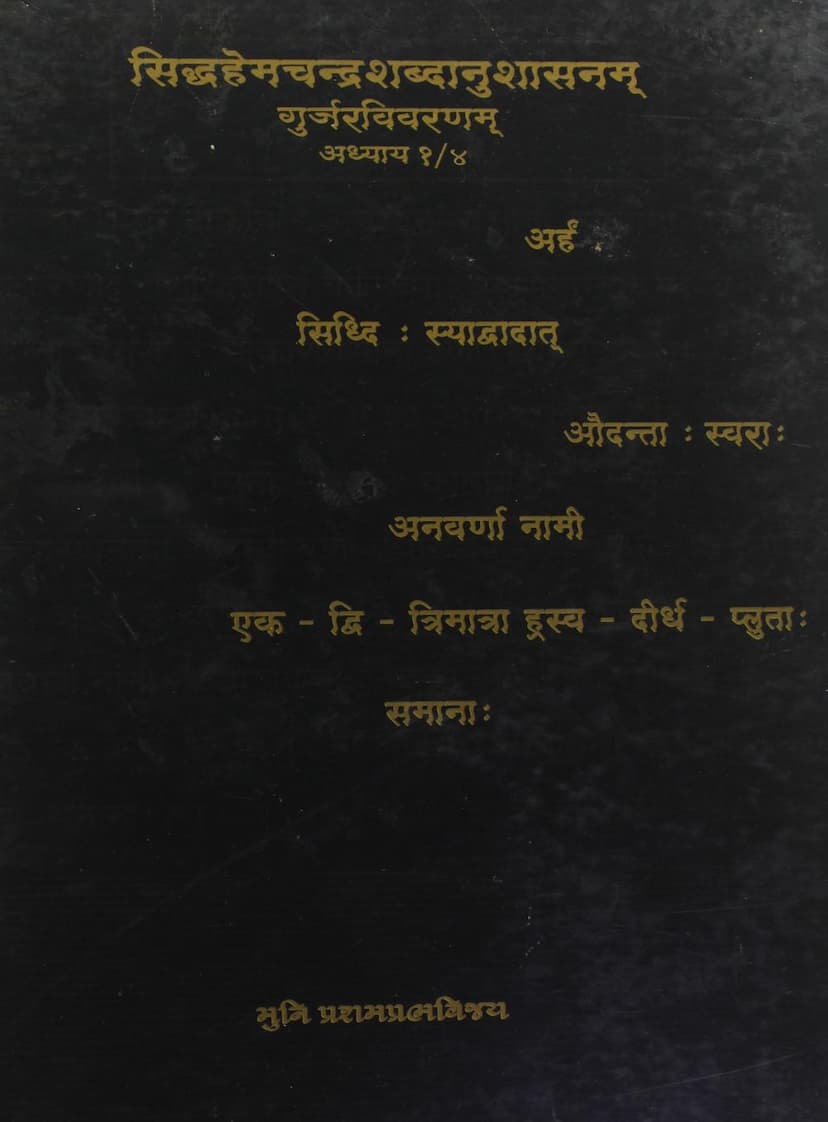 सिद्धहेमचन्द्रशब्दानुशासनम्
गुर्जरविवरणम्
अध्याय १/४
अर्हं
सिध्दि : स्याद्वादात्
औदन्ता : स्वराः
अनवर्णा नामी
एक - द्वि - त्रिमात्रा ह्रस्व - दीर्ध - प्लुताः
समानाः
मुनि प्रशमप्रभविजय